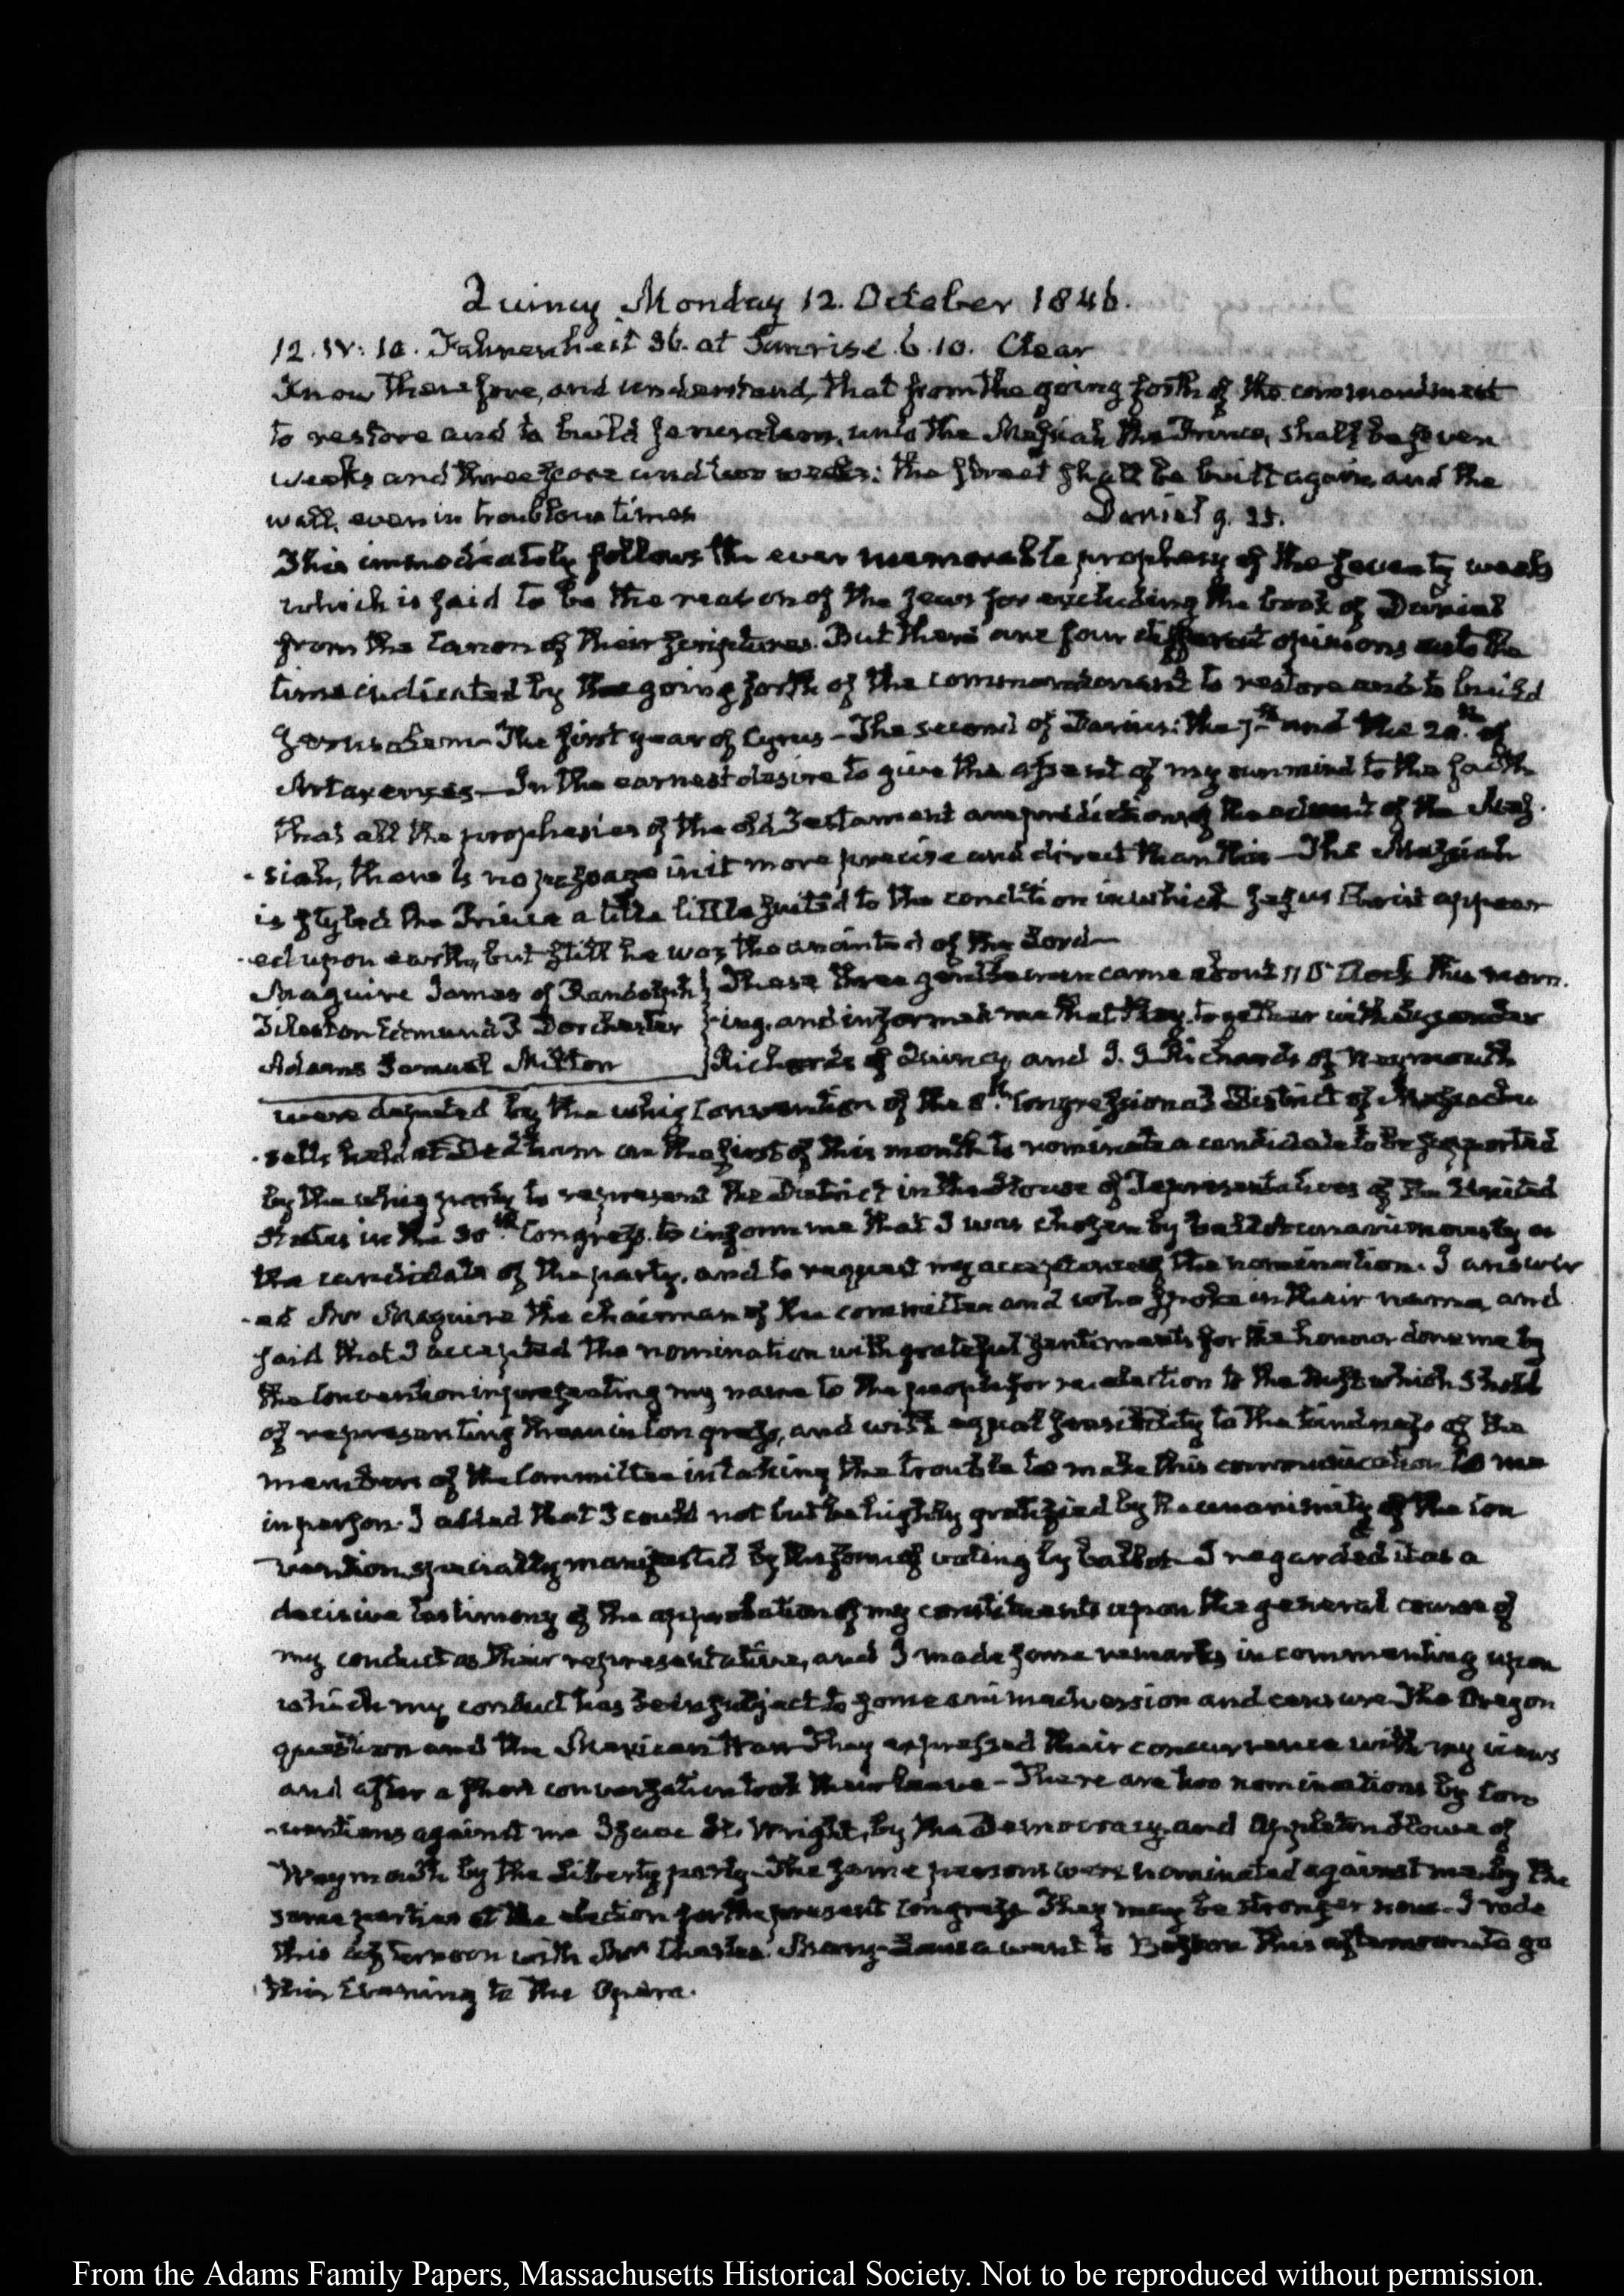 Quincy Monday 12. October 1846.
12. IV: 10. Fahrenheit 36. at Sunrise 6.10. Clear
Know therefore, and understand, that from the going forth of the commandment
to restore and to build Jerusalem, unto the Messiah the Prince, shall be seven
weeks and threescore and two weeks: the street shall be built again, and the
wall, even in troublous times Daniel 9. 25.
This immediately follows the ever memorable prophesy of the seventy weeks
which is said to be the reason of the Jews for excluding the book of Daniel
from the Canon of their Scriptures. But there are four different opinions as to the
time indicated by the going forth of the commandment to restore and to build
Jerusalem—The first year of Cyrus—The second of Darius: the 7th and the 20th of
Artaxerxes—In the earnest desire to give the assent of my own mind to the faith
that all the prophesies of the old Testament are predictions of the advent of the Mes-
-siah, there is no passage in it more precise and direct than this—The Messiah
is styled the Prince a title little suited to the condition in which Jesus Christ appear
-ed upon earth, but still he was the anointed of the Lord—
Maguire James of Randolph } These three gentlemen came about 11 O'Clock this morn.
Tileston Edmund T Dorchester } -ing, and informed me that they, together with Lysander
Adams Samuel Milton } Richards of Quincy, and Richards of Weymouth
were deputed by the whig Convention of the 8th Congressional District of Massachu
-setts held at Dedham on the first of this month to nominate a candidate to be supported
by the whig party to represent the District in the House of Representatives of the United
States in the 30th Congress, to inform me that I was chosen by ballot unanimously as
the candidate of the party, and to request my acceptance of the nomination. I answer
-ed Mr Maguire the chairman of the committee and who spoke in their name, and
said that I accepted the nomination with grateful sentiments for the honour done me by
the Convention in presenting my name to the people for re-election to the trust which I hold
of representing them in Congress, and with equal sensibility to the kindness of the
members of the Committee in taking the trouble to make this communication to me
in person. I added that I could not but be highly gratified by the unanimity of the Con
vention, specially manifested by the form of voting by ballot—I regarded it as a
decisive testimony of the approbation of my constituents upon the general course of
my conduct as their representative, and I made some remarks in commenting upon
which my conduct has been subject to some animadversion and censure—The Oregon
question and the Mexican War—They expressed their concurrence with my views
and after a short conversation took their leave—There are two nominations by Con
-ventions against me Isaac H. Wright, by the Democracy, and Appleton Howe of
Weymouth by the Liberty party—The same persons were nominated against me by the
same parties at the election for the present Congress They may be stronger now—I rode
this afternoon with Mrs Charles. Mary-Louisa went to Boston this afternoon to go
this Evening to the Opera.
From the Adams Family Papers, Massachusetts Historical Society. Not to be reproduced without permission.